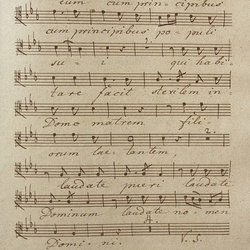 cum cum prin-cipibus
cum principibus po-puli
su-i qui habi-
tare facit sterilem in
Domo matrem fili-
orum lae-tantem,
laudate pueri laudate
Dominum laudate no-men
Domi-ni. V.S.